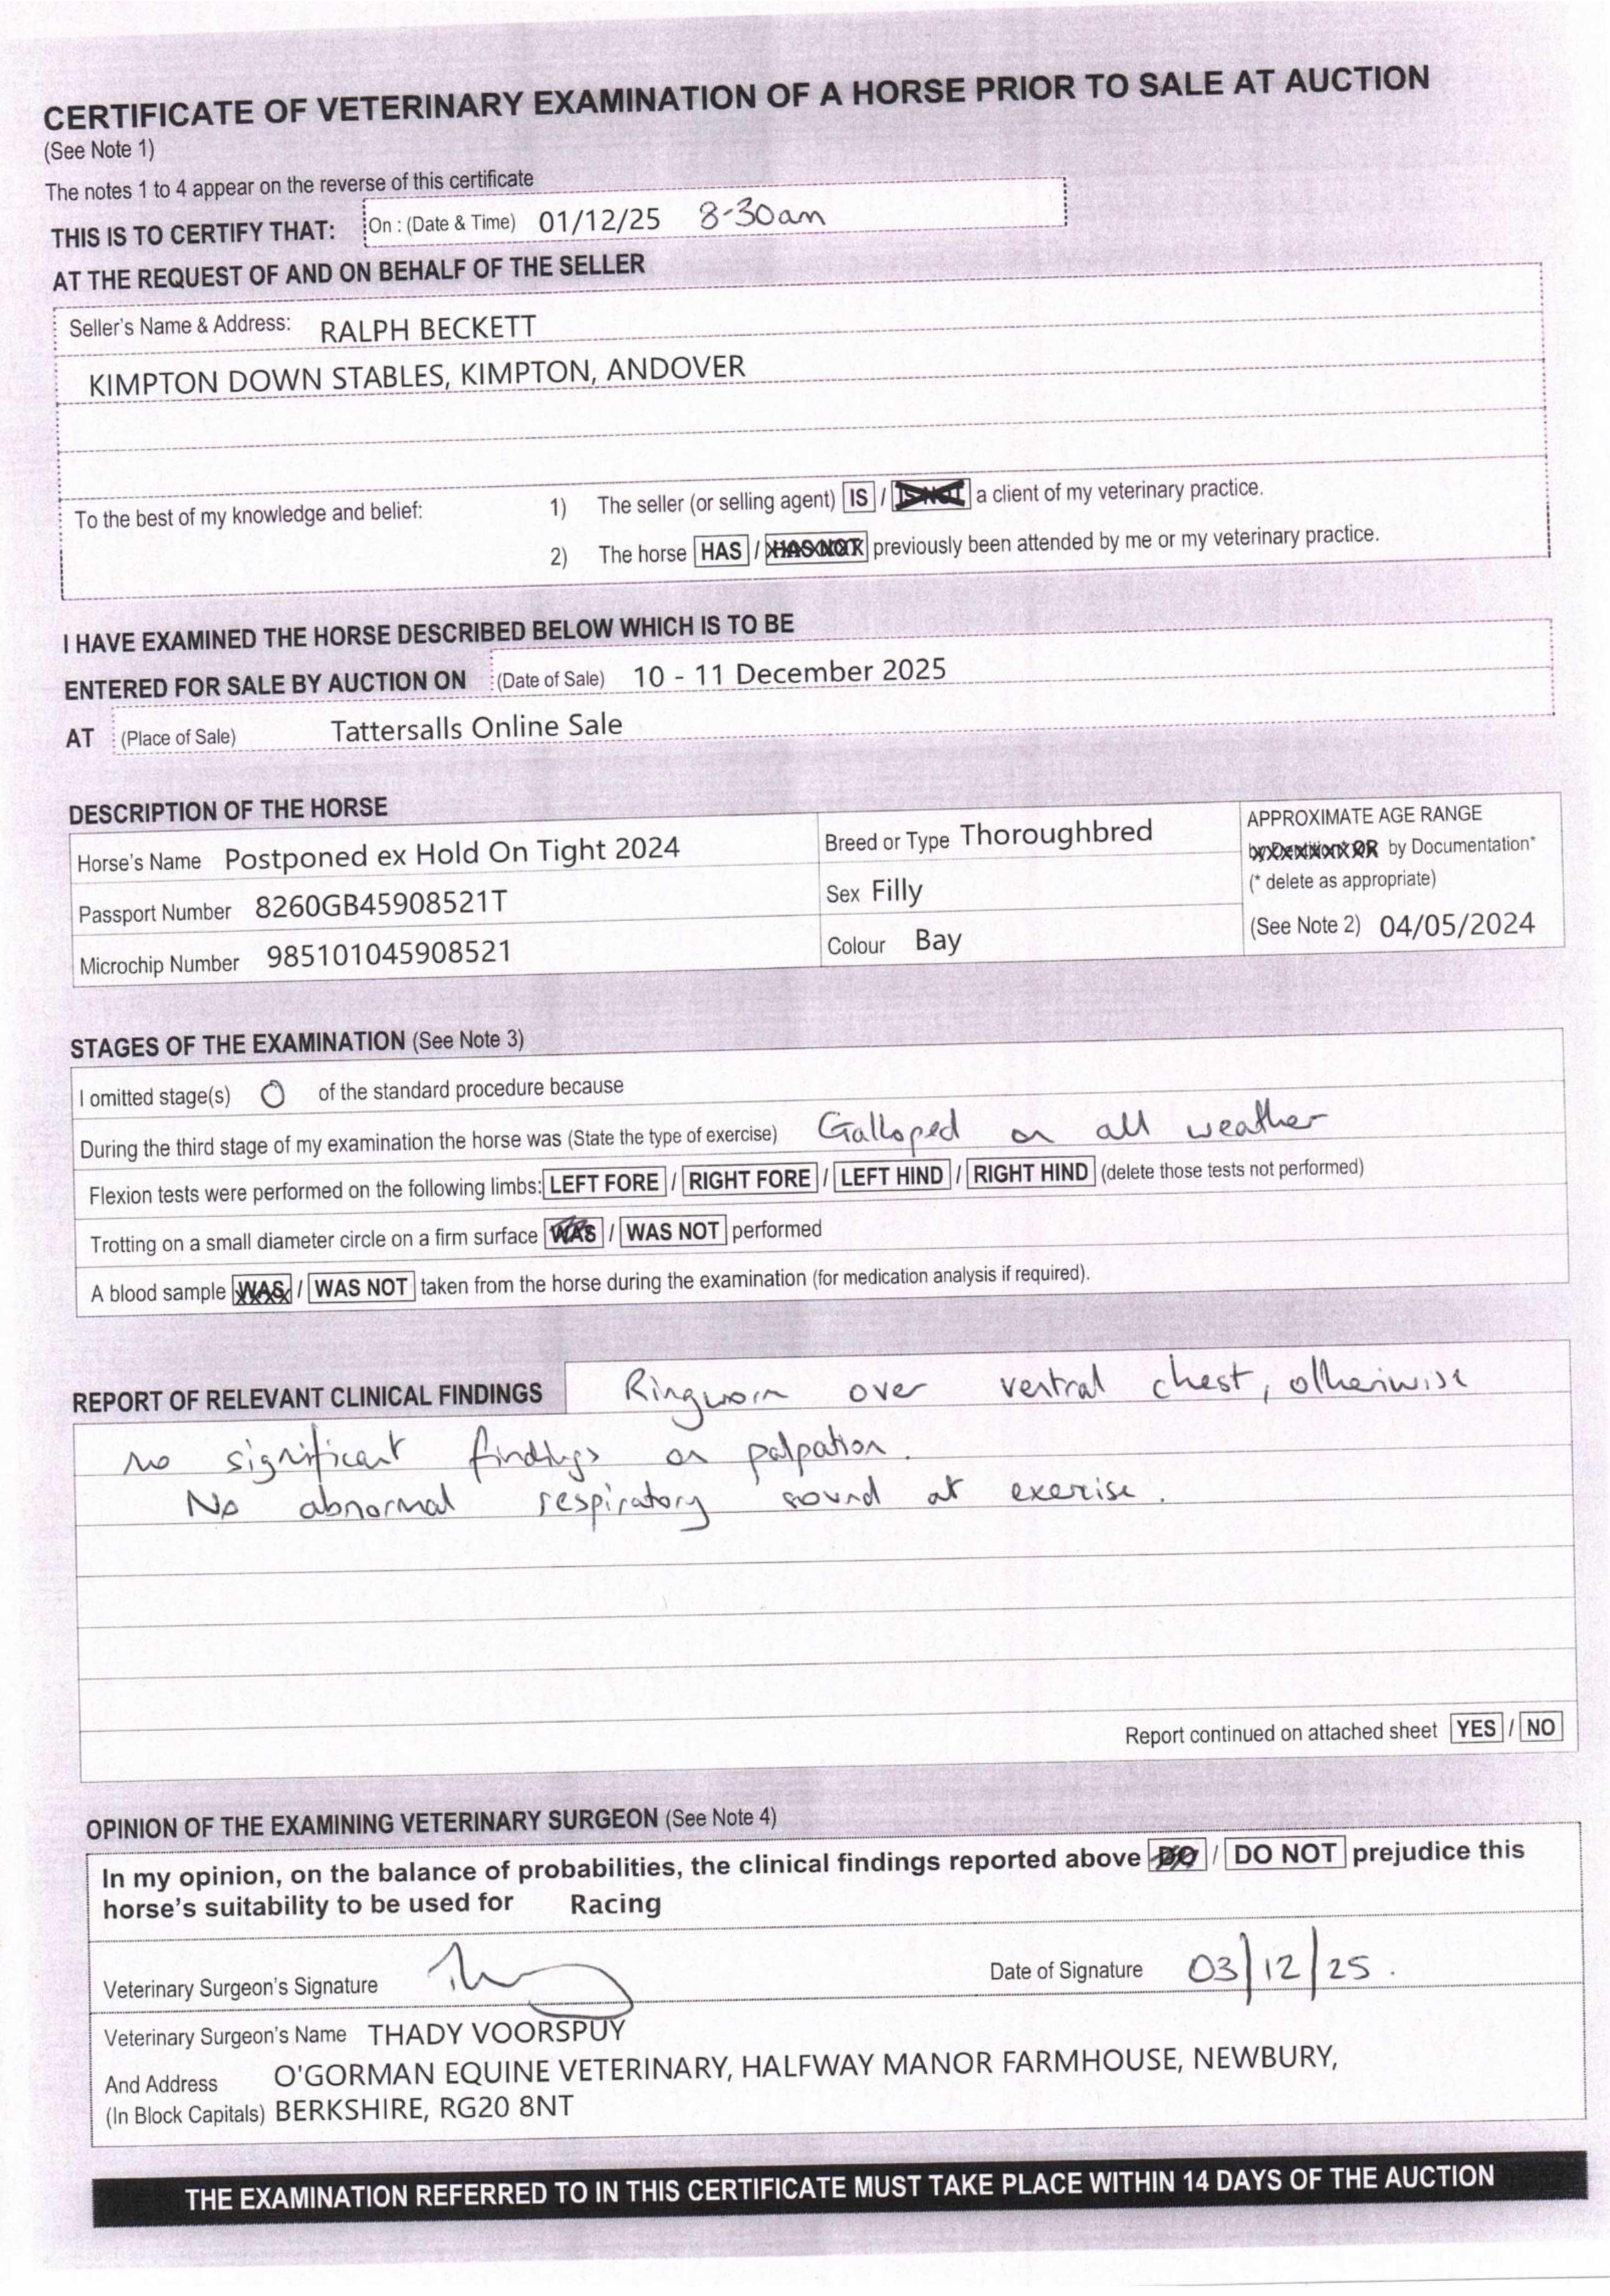 CERTIFICATE OF VETERINARY EXAMINATION OF A HORSE PRIOR TO SALE AT AUCTION
(See Note 1)
The notes 1 to 4 appear on the reverse of this certificate
THIS IS TO CERTIFY THAT: On : (Date & Time) 01/12/25 8-30am
AT THE REQUEST OF AND ON BEHALF OF THE SELLER
Seller's Name & Address: RALPH BECKETT
KIMPTON DOWN STABLES, KIMPTON, ANDOVER
To the best of my knowledge and belief: 1) The seller (or selling agent) IS / IS NOT a client of my veterinary practice.
2) The horse HAS / HAS NOT previously been attended by me or my veterinary practice.
I HAVE EXAMINED THE HORSE DESCRIBED BELOW WHICH IS TO BE
ENTERED FOR SALE BY AUCTION ON (Date of Sale) 10 - 11 December 2025
AT (Place of Sale) Tattersalls Online Sale
DESCRIPTION OF THE HORSE
Horse's Name Postponed ex Hold On Tight 2024
Passport Number 8260GB45908521T
Microchip Number 985101045908521
Breed or Type Thoroughbred
Sex Filly
Colour Bay
APPROXIMATE AGE RANGE
by Dentition* OR by Documentation*
(* delete as appropriate)
(See Note 2) 04/05/2024
STAGES OF THE EXAMINATION (See Note 3)
I omitted stage(s) 0 of the standard procedure because
During the third stage of my examination the horse was (State the type of exercise) Galloped on all weather
Flexion tests were performed on the following limbs: LEFT FORE / RIGHT FORE / LEFT HIND / RIGHT HIND (delete those tests not performed)
Trotting on a small diameter circle on a firm surface WAS / WAS NOT performed
A blood sample WAS / WAS NOT taken from the horse during the examination (for medication analysis if required).
REPORT OF RELEVANT CLINICAL FINDINGS Ringworm over ventral chest, otherwise
no significant findings on palpation.
No abnormal respiratory sound at exercise.
Report continued on attached sheet YES / NO
OPINION OF THE EXAMINING VETERINARY SURGEON (See Note 4)
In my opinion, on the balance of probabilities, the clinical findings reported above DO / DO NOT prejudice this
horse's suitability to be used for Racing
Veterinary Surgeon's Signature Date of Signature 03/12/25.
Veterinary Surgeon's Name THADY VOORSPUY
And Address O'GORMAN EQUINE VETERINARY, HALFWAY MANOR FARMHOUSE, NEWBURY,
(In Block Capitals) BERKSHIRE, RG20 8NT
THE EXAMINATION REFERRED TO IN THIS CERTIFICATE MUST TAKE PLACE WITHIN 14 DAYS OF THE AUCTION